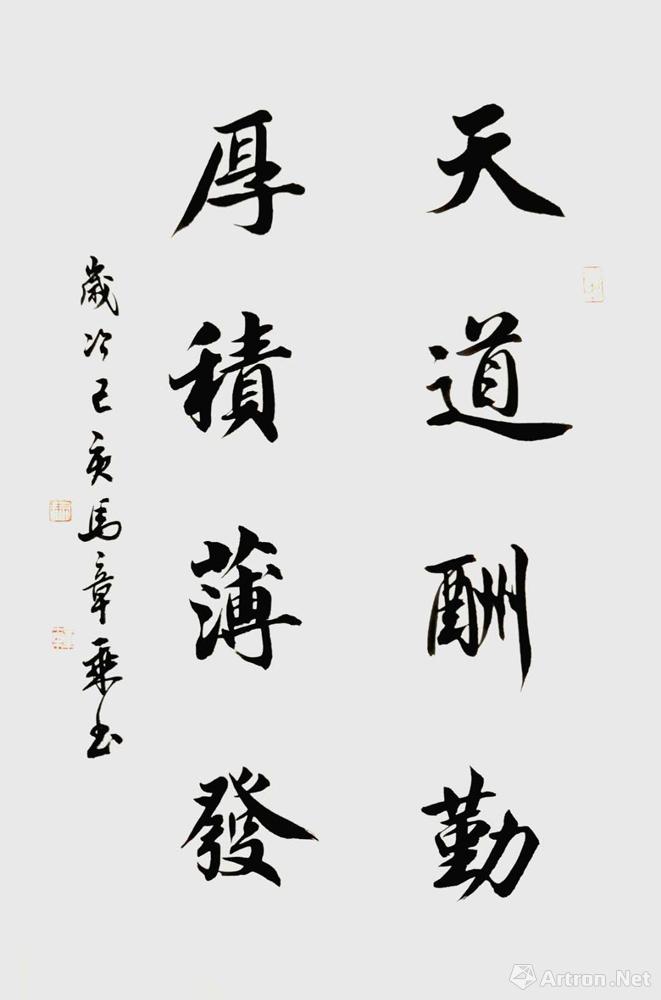 天道酬勤
厚積薄發
歲次己亥馬章乘書
Artron.Net